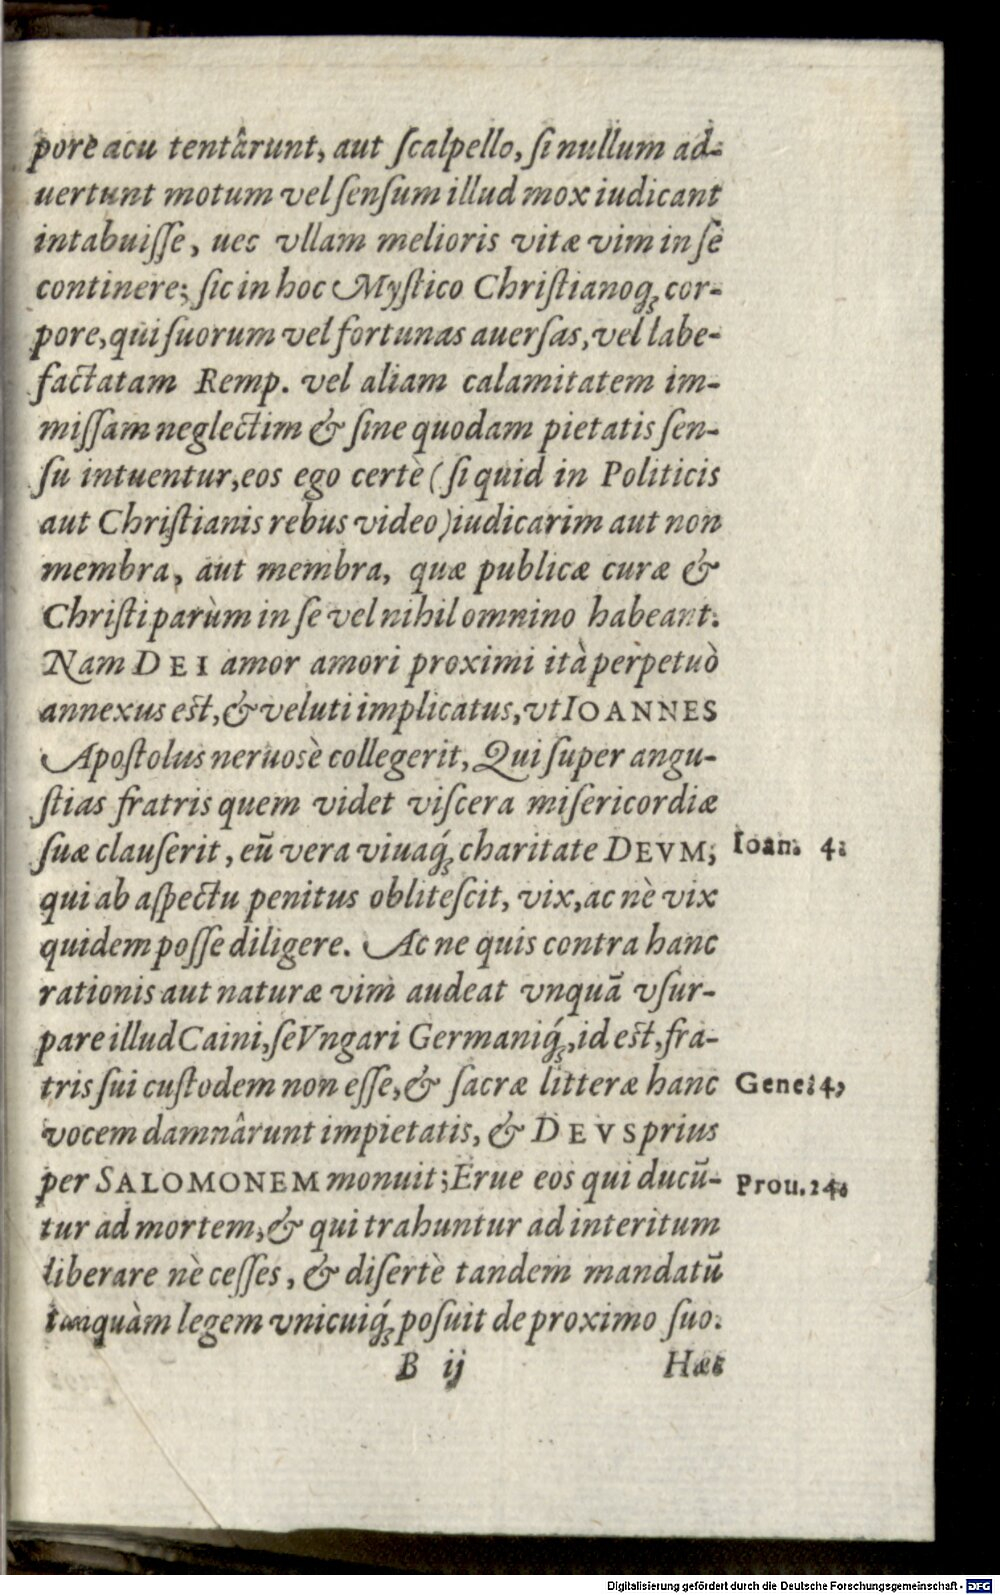 pore acu tentârunt, aut ſcalpello, ſi nullum ad-
uertunt motum vel ſenſum illud mox iudicant
intabuiſſe, uec vllam melioris vitæ vim in ſe
continere; ſic in hoc Myſtico Chriſtianoq́; cor-
pore, qui ſuorum vel fortunas auerſas, vel labe-
factatam Remp. vel aliam calamitatem im-
miſſam neglectim & ſine quodam pietatis ſen-
ſu intuentur, eos ego certè (ſi quid in Politicis
aut Chriſtianis rebus video) iudicarim aut non
membra, aut membra, quæ publicæ curæ &
Chriſti parùm in ſe vel nihil omnino habeant.
Nam DEI amor amori proximi ità perpetuò
annexus est, & veluti implicatus, vt IOANNES
Apoſtolus neruosè collegerit, Qui ſuper angu-
ſtias fratris quem videt viſcera miſericordiæ
ſuæ clauſerit, eū vera viuaq́; charitate DEVM; Ioan. 4.
qui ab aſpectu penitus obliteſcit, vix, ac nè vix
quidem poſſe diligere. Ac ne quis contra hanc
rationis aut naturæ vim audeat vnquā vſur-
pare illud Caini, ſe Vngari Germaniq́;, id est, fra-
tris ſui cuſtodem non eſſe, & ſacræ litteræ hanc Gene. 4,
vocem damnârunt impietatis, & DEVS prius
per SALOMONEM monuit; Erue eos qui ducū- Prou. 24.
tur ad mortem, & qui trahuntur ad interitum
liberare nè ceſſes, & diſertè tandem mandatū
tanquàm legem vnicuiq́; poſuit de proximo ſuo.
B ij Hæc
Digitalisierung gefördert durch die Deutsche Forschungsgemeinschaft - DFG